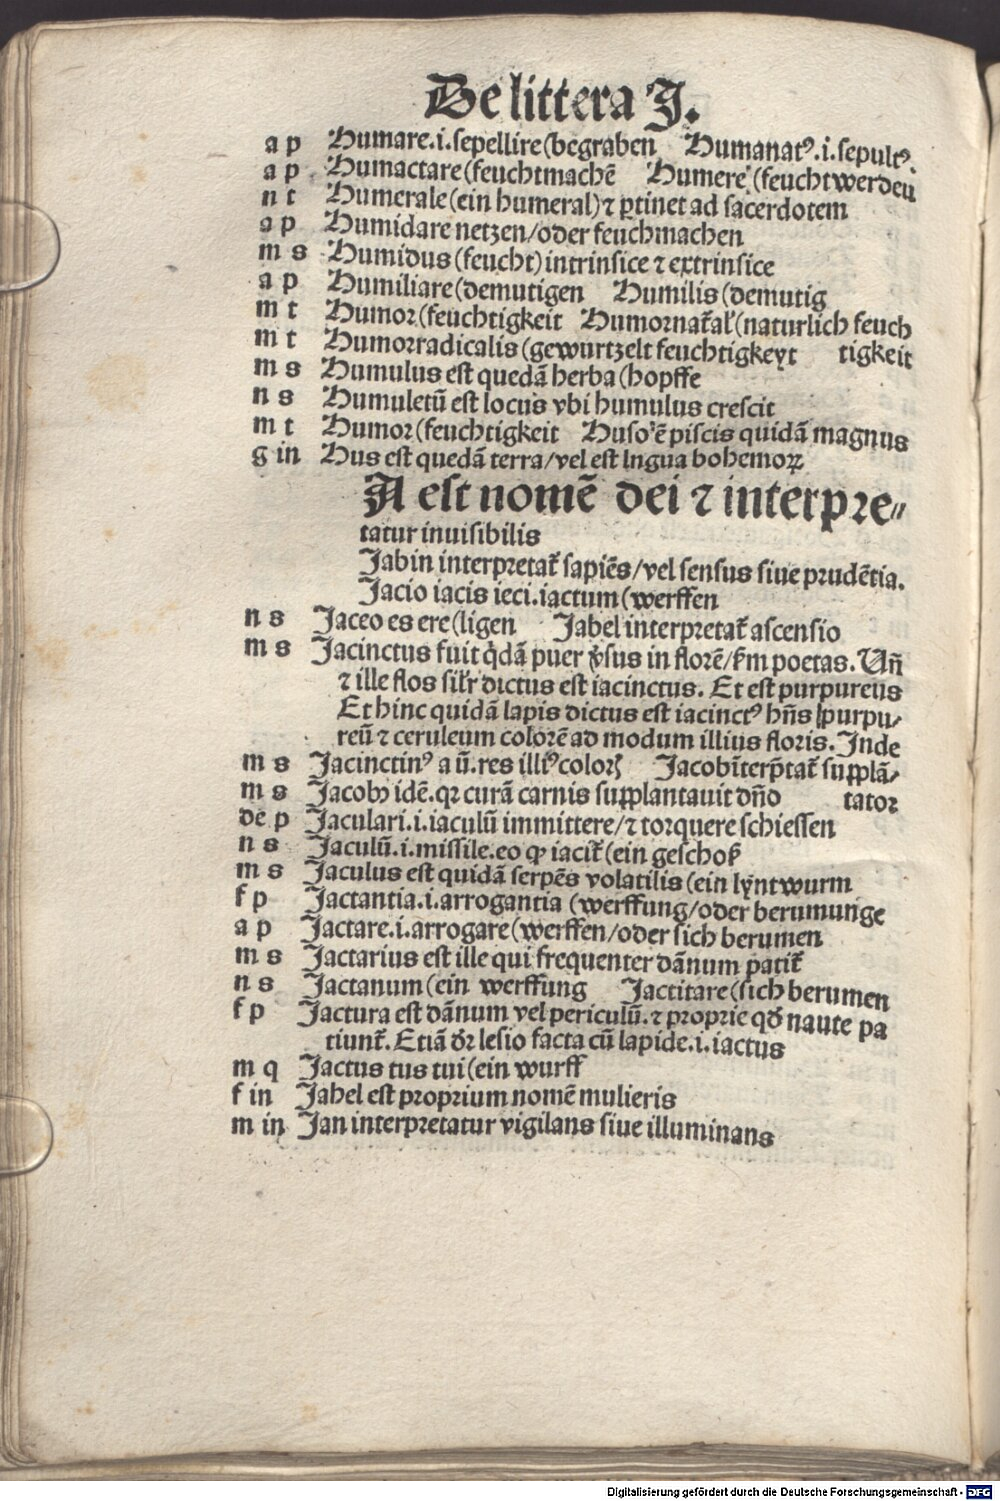 De littera J.
a p Humare.i.sepellire(begraben Humanatꝰ.i.sepultꝰ.
a p Humactare(feuchtmachē Humere (feuchtwerden
n t Humerale(ein humeral)⁊ ꝑtinet ad sacerdotem
a p Humidare netzen/oder feuchmachen
m s Humidus(feucht)intrinsice ⁊ extrinsice
a p Humiliare(demutigen Humilis(demutig
m t Humor(feuchtigkeit Humornat̄al'(naturlich feuch
m t Humorradicalis(gewurtzelt feuchtigkeyt tigkeit
m s Humulus est quedā herba(hopffe
n s Humuletū est locus vbi humulus crescit
m t Humor(feuchtigkeit Huso ē piscis quidā magnus
g in Hus est quedā terra/vel est lngua bohemoꝝ
A est nomē dei ⁊ interpre⸗
tatur inuisibilis
Jabin interpretat̄ sapiēs/vel sensus siue prudētia.
Jacio iacis ieci.iactum(werffen
n s Jaceo es ere(ligen Jabel interpretat̄ ascensio
m s Jacinctus fuit q̇dā puer ꝟsus in florē/ẜm poetas.Uñ
⁊ ille flos sil'r dictus est iacinctus. Et est purpureus
Et hinc quidā lapis dictus est iacinctꝰ hñs purpu⸗
reū ⁊ ceruleum colorē ad modum illius floris.Inde
m s Jacinctinꝰ a ū.res illiꝰ coloris Jacob īterp̄tat̄ supplā⸗
m s Jacobꝰ idē.qꝛ curā carnis supplantauit dño tator
de p Jaculari.i.iaculū immittere/⁊ torquere schiessen
n s Jaculū.i.missile.eo ꝙ iacit̄(ein geschoß
m s Jaculus est quidā serpēs volatilis(ein lyntwurm
f p Jactantia.i.arrogantia (werffung/oder berumunge
a p Jactare.i.arrogare(werffen/oder sich berumen
m s Jactarius est ille qui frequenter dānum patit̄
n s Jactanum(ein werffung Jactitare(sich berumen
f p Jactura est dānum vel periculū.⁊ proprie qđ naute pa
tiunt̄.Etiā đr lesio facta cū lapide.i.iactus
m q Jactus tus tui(ein wurff
f in Jahel est proprium nomē mulieris
m in Jan interpretatur vigilans siue illuminans
Digitalisierung gefördert durch die Deutsche Forschungsgemeinschaft - DFG